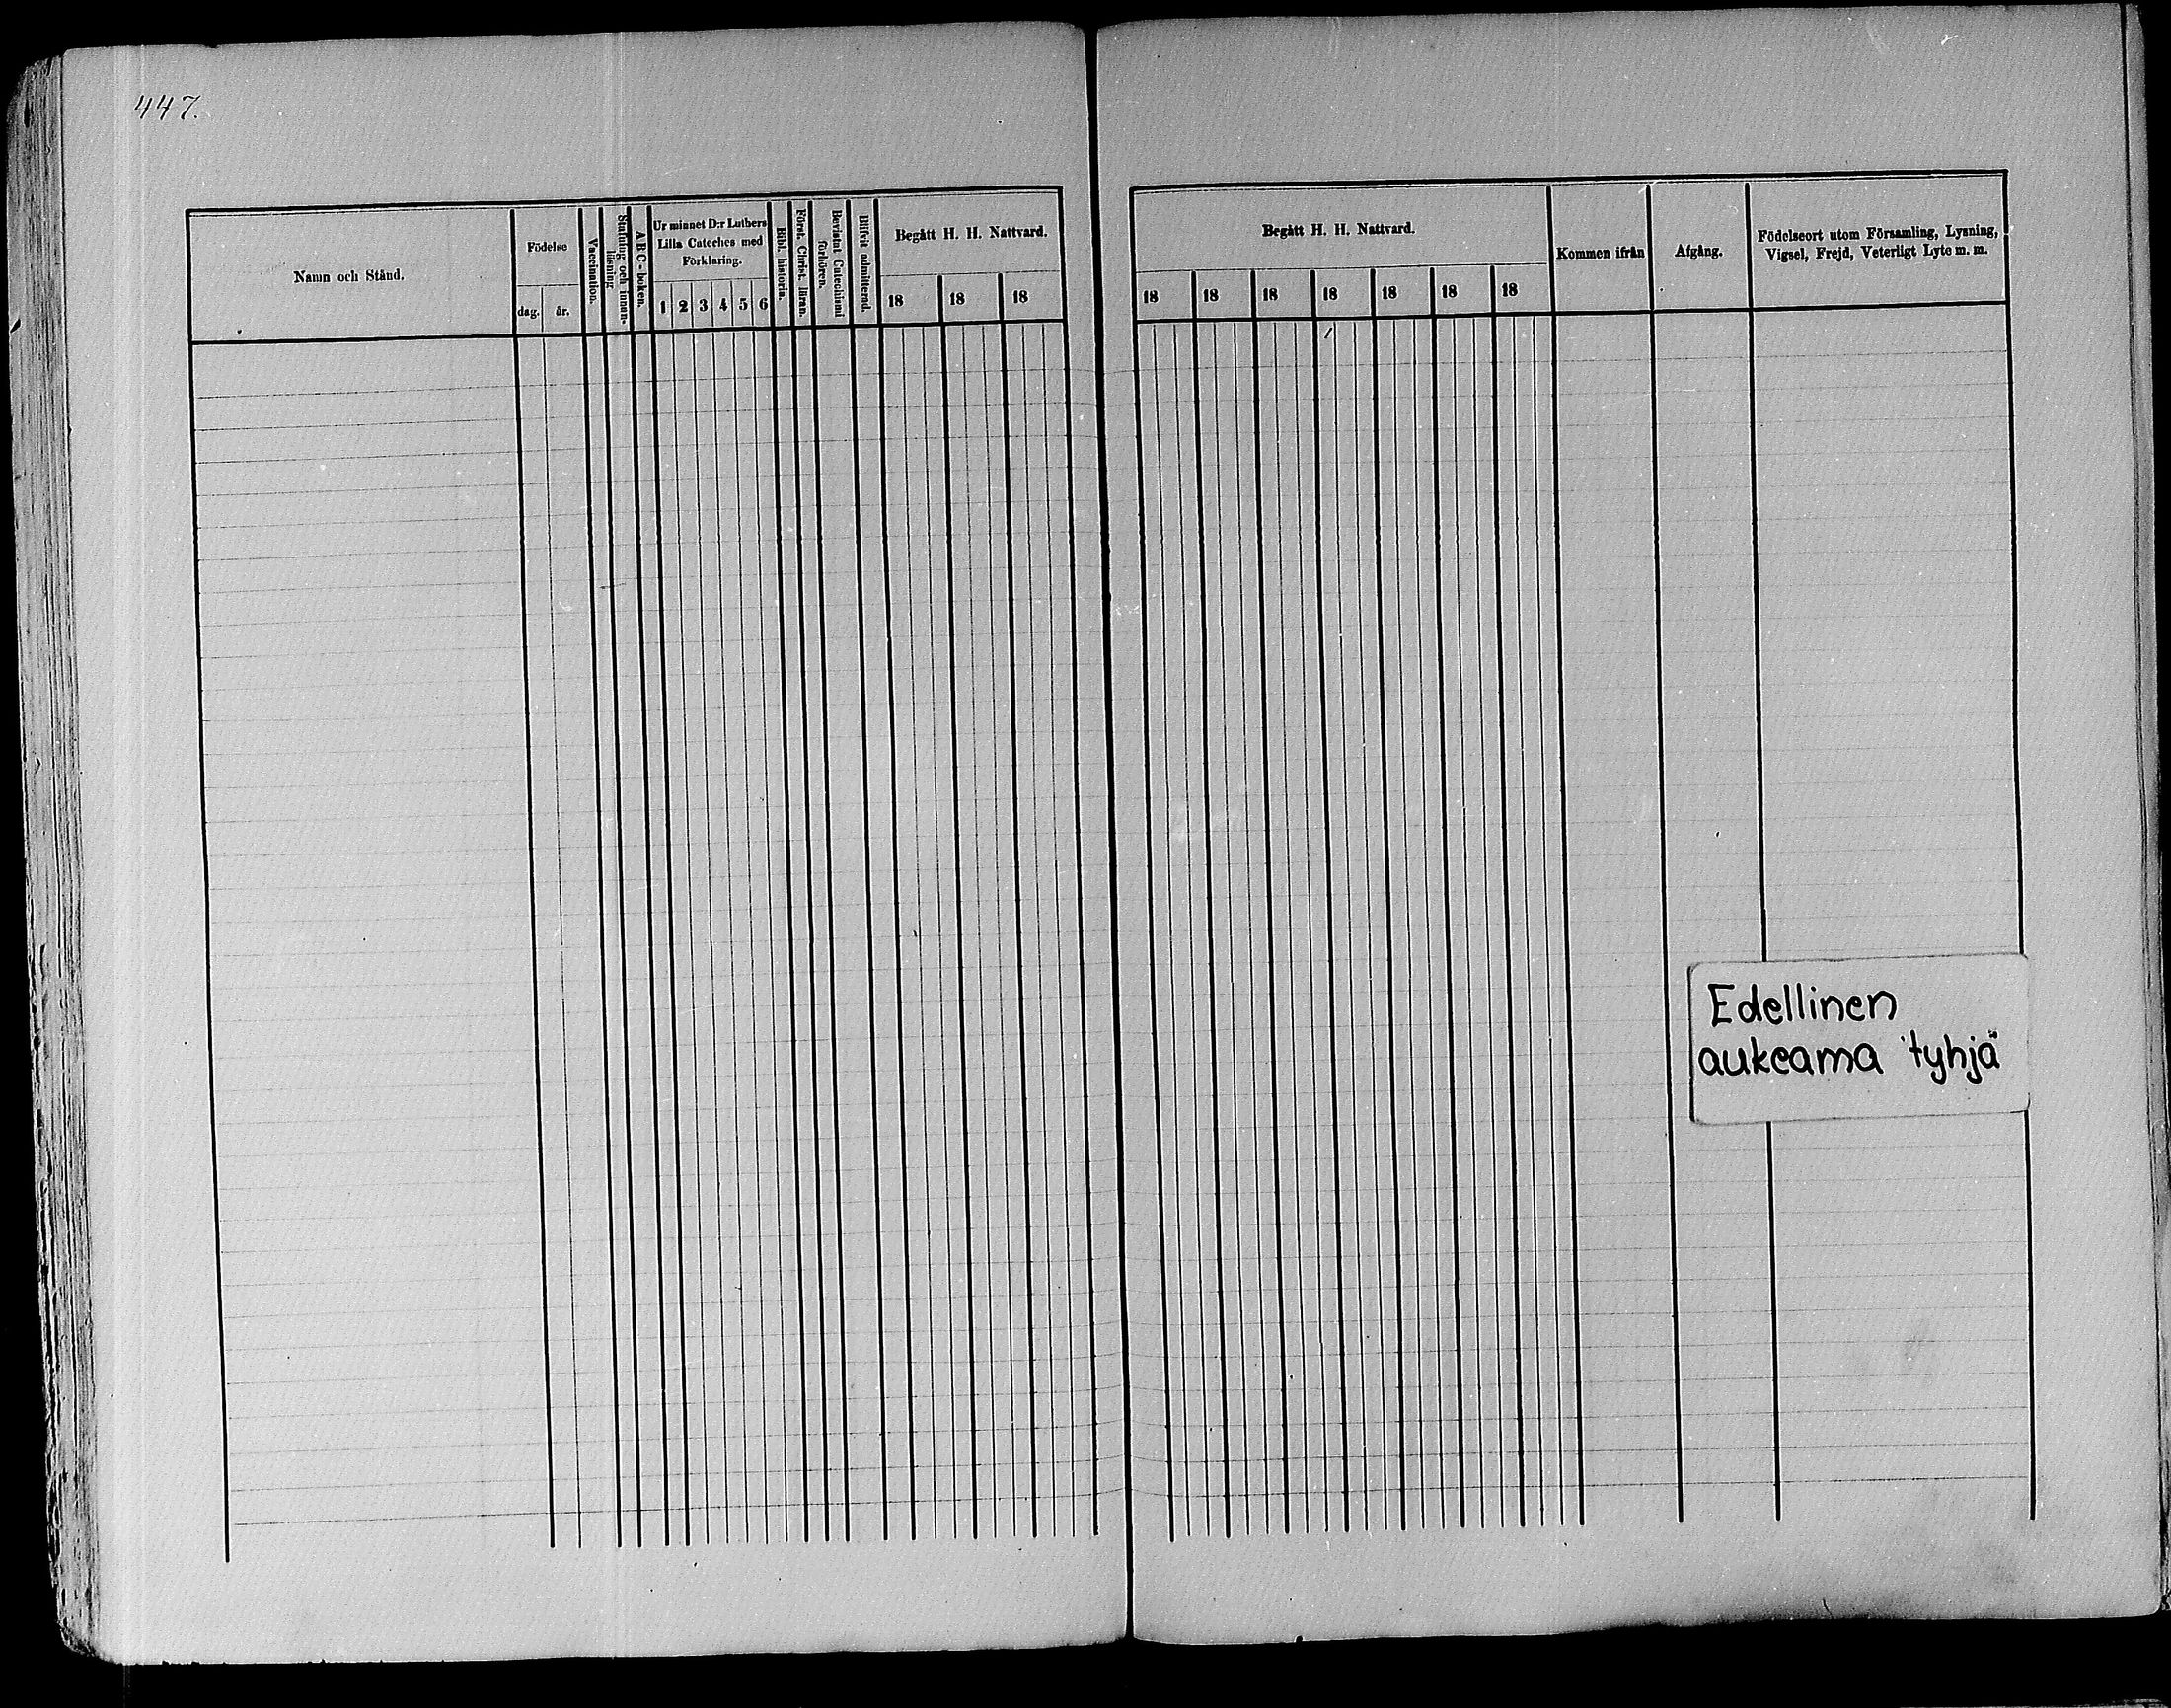 447.
Namn och Stånd.
Födelse
dag.
år.
Vaccination.
Stafning och innan-
läsning
A B C-boken.
Ur minnet D:r Luthers
Lilla Cateches med
Förklaring.
1 2 3 4 5 6
Bibl. historia.
Först. Christ. läran.
Bevistat Catechismi
förhören.
Blifvit admitterad.
Begått H. H. Nattvard.
18 18 18
Begått H. H. Nattvard.
18 18 18 18 18 18 18
Kommen ifrån
Afgång.
Födelseort utom Församling, Lysning,
Vigsel, Frejd, Veterligt Lyte m. m.
Edellinen
aukeama tyhjä